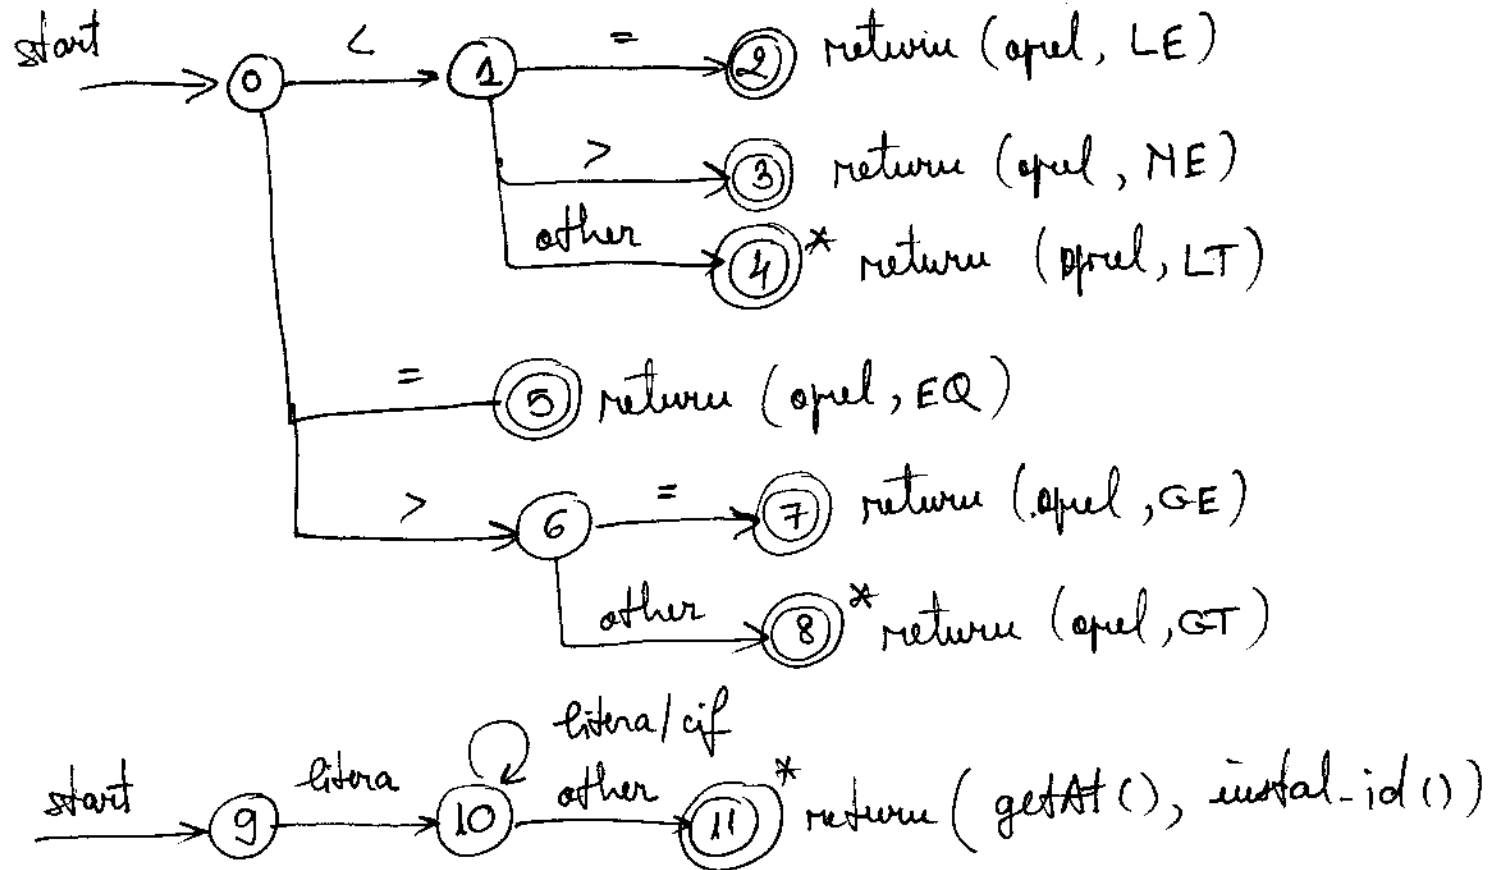 start < =
0 1 2 return (oprel, LE)
> 3 return (oprel, NE)
other 4 * return (oprel, LT)
= 5 return (oprel, EQ)
> 6 = 7 return (oprel, GE)
other 8 * return (oprel, GT)
litera/cif
start 9 litera 10 other 11 * return (getAt(), instal_id())